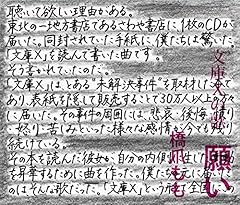 聴いて欲しい理由がある。
東北の一地方書店であるさわや書店に、1枚のCDが
届いた。同封されていた手紙に、僕たちは驚いた。
「文庫Xを読んで書いた曲です。」
そう書かれていたのだ。
「文庫X」とは、ある"未解決事件"を取材した本であ
り、表紙を隠して販売することで30万人以上
に届いた。その事件の周囲には、悲哀、後悔、
怒り、苦しみといった様々な感情が今でも
続けている。
その本を読んだ彼女が、自分の内側
を昇華するために曲を作った。僕たちの元に届いた
のはそんな歌だった。「文庫X」という
文庫X
願い
橋爪もも